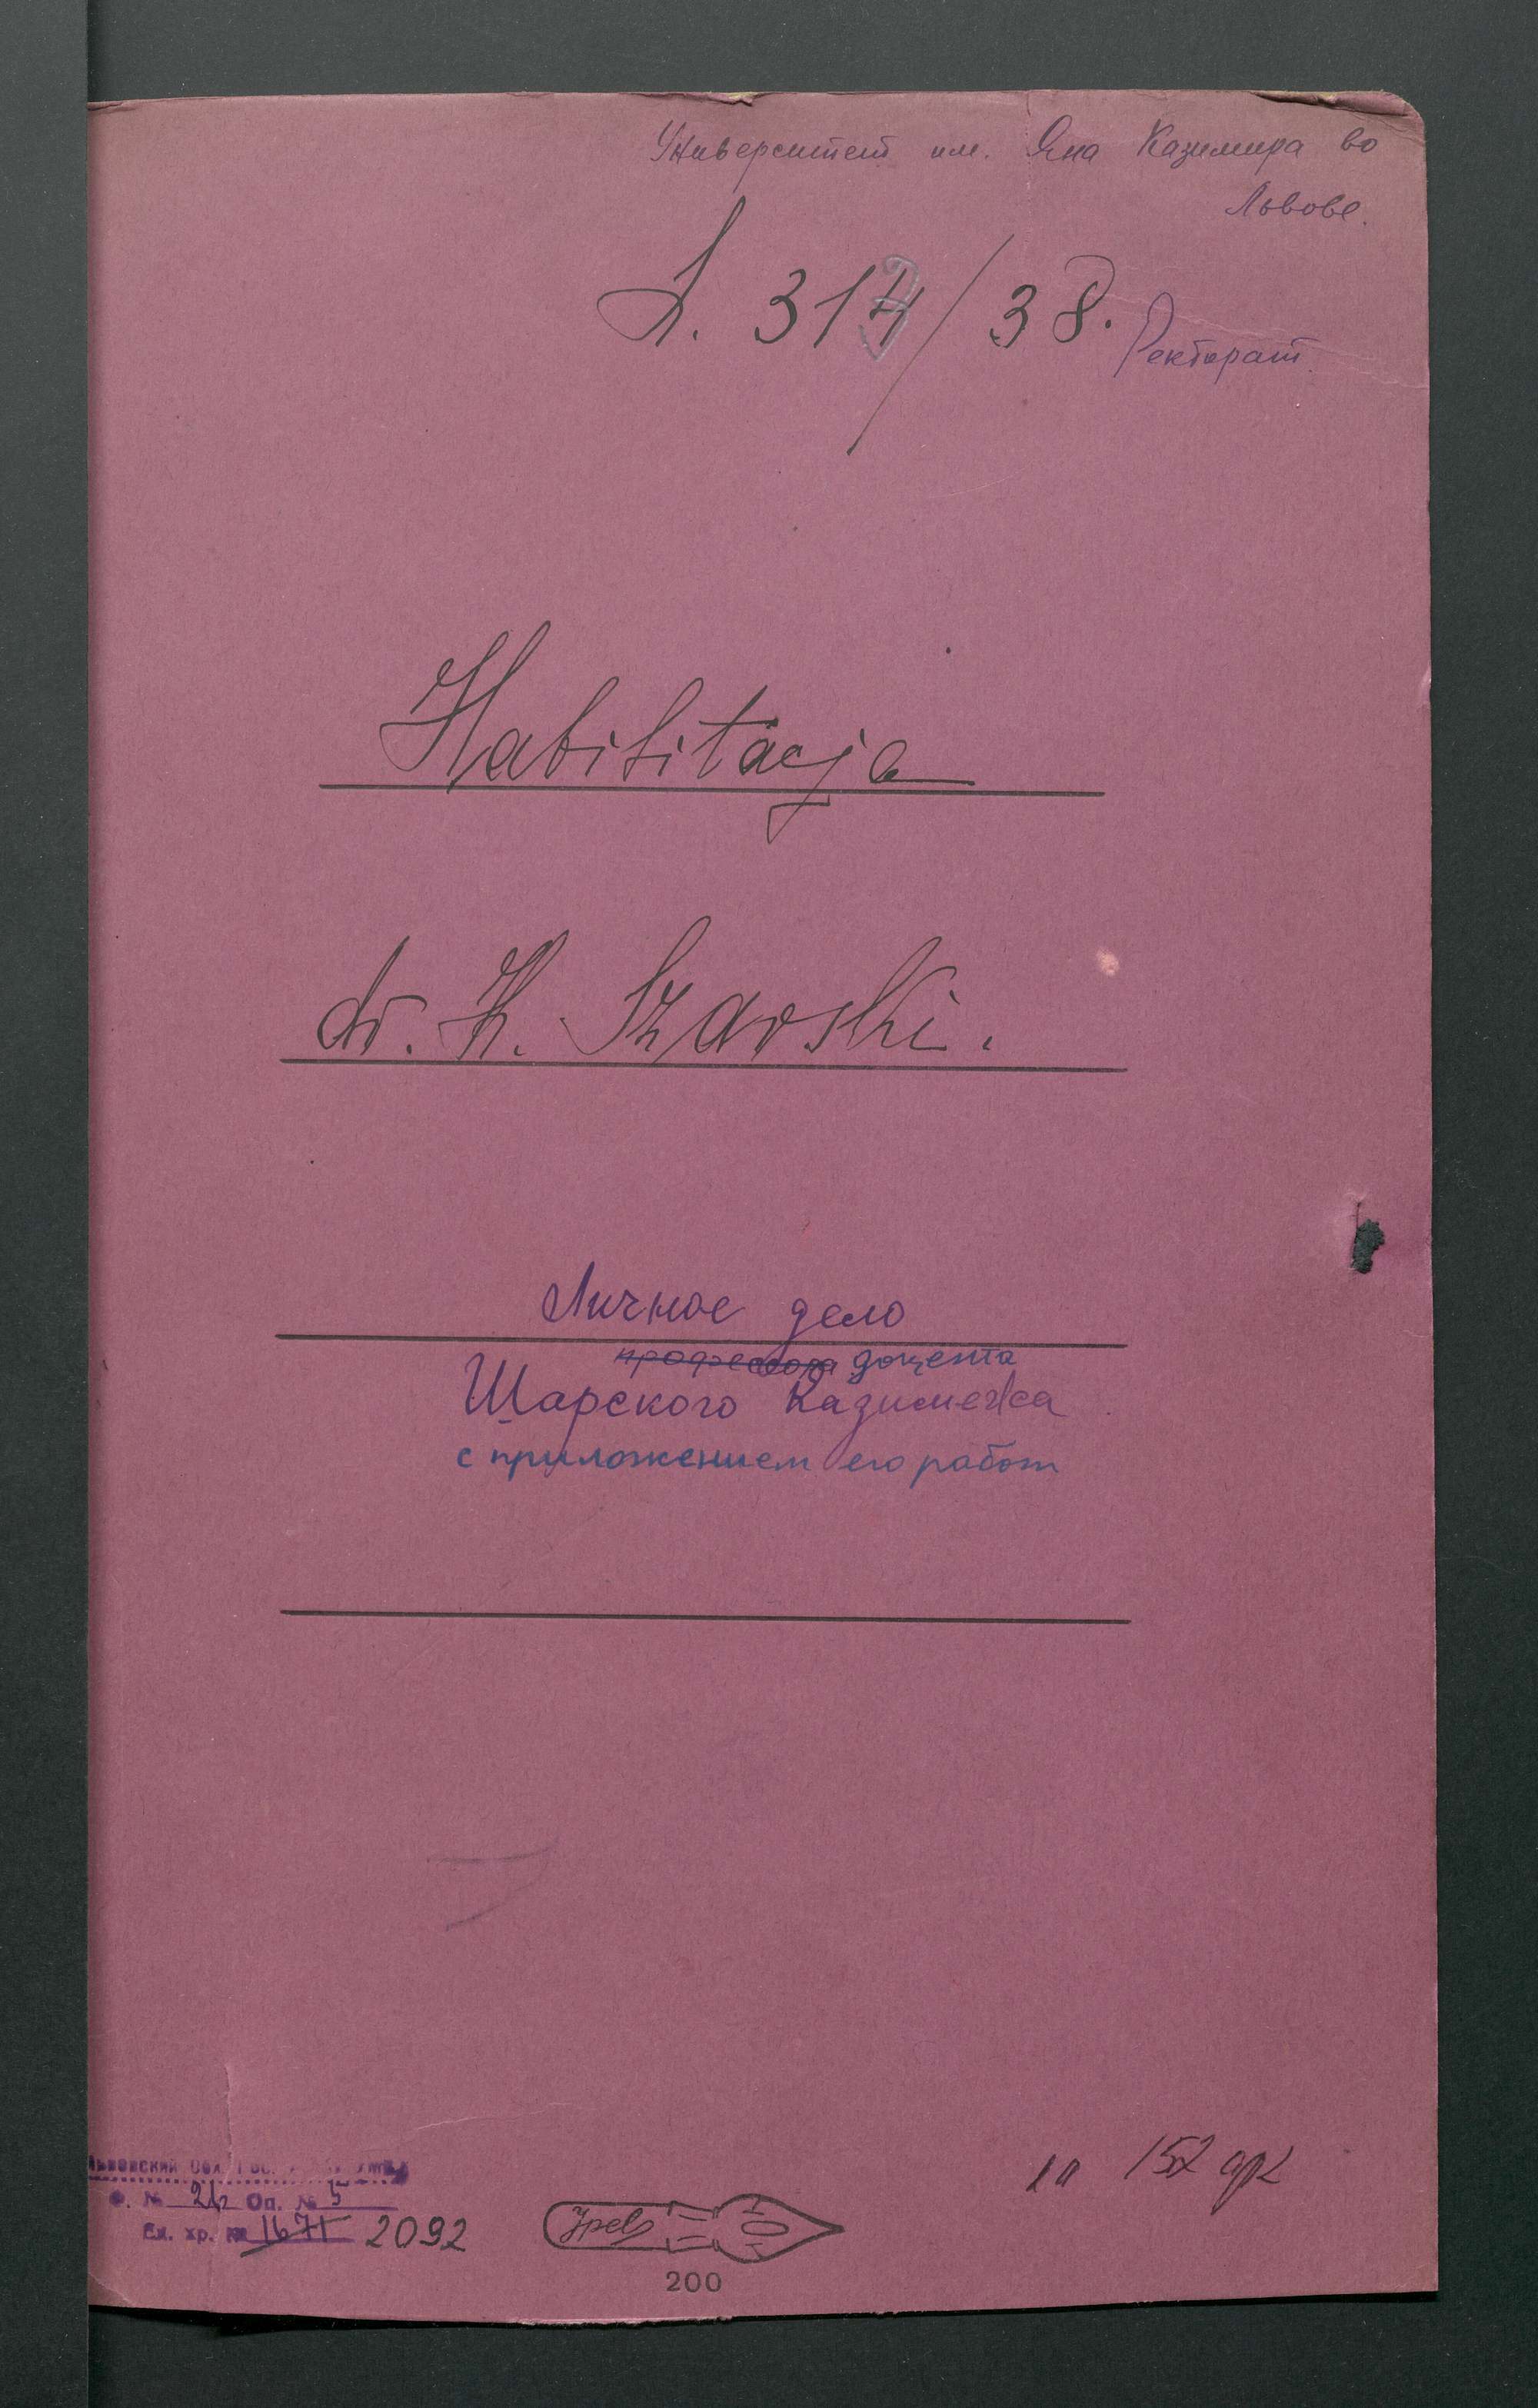 Университет им. Яна Казимира во
Львове.
L. 313/38.
Ректорат.
Habilitacja
dr. K. Szarski.
Личное дело
профессора доцента
Шарского Казимежа
с приложением его работ
Львовский Обл. Гос.
Ф. № 26 Оп. № 5
Ед. хр. № 1671 2092
152 арк
200